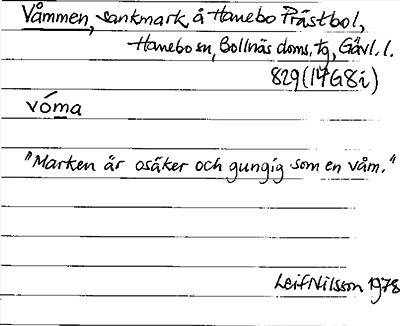 Våmmen, sankmark, å Hanebo Prästbol,
Hanebo sn, Bollnäs doms. tg, Gävl. l.
829 (14G8i)
vóma
"Marken är osäker och gungig som en våm."
Leif Nilsson 1978